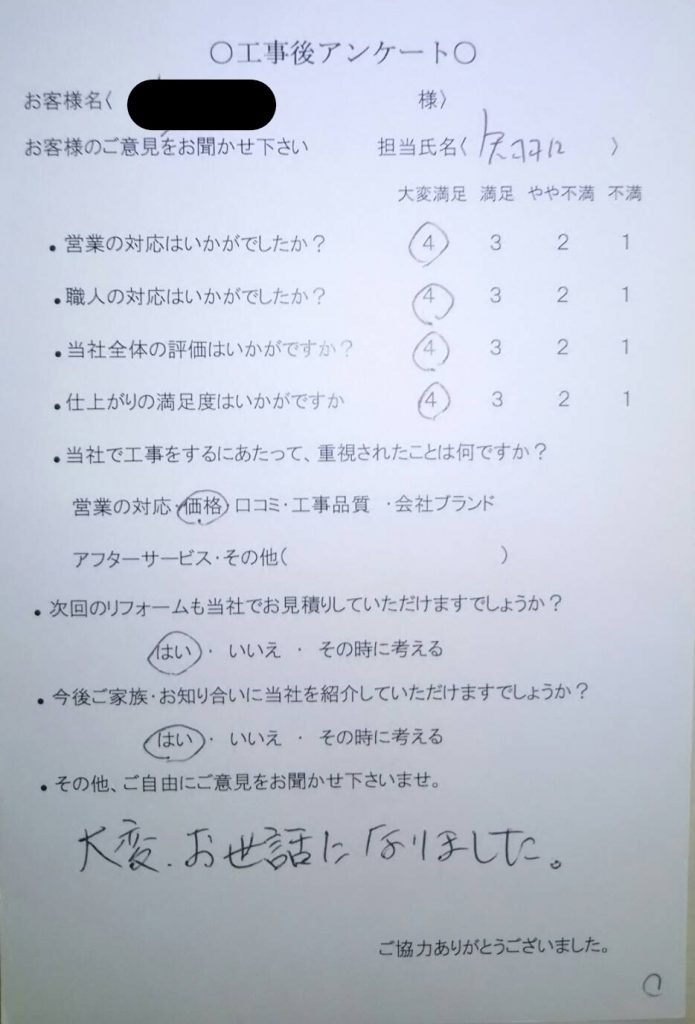 ○工事後アンケート○
お客様名( 様)
お客様のご意見をお聞かせ下さい 担当氏名( )
大変満足 満足 やや不満 不満
・営業の対応はいかがでしたか？ 4 3 2 1
・職人の対応はいかがでしたか？ 4 3 2 1
・当社全体の評価はいかがですか？ 4 3 2 1
・仕上がりの満足度はいかがですか 4 3 2 1
・当社で工事をするにあたって、重視されたことは何ですか？
営業の対応・価格・口コミ・工事品質 ・会社ブランド
アフターサービス・その他( )
・次回のリフォームも当社でお見積りしていただけますでしょうか？
はい ・ いいえ ・ その時に考える
・今後ご家族・お知り合いに当社を紹介していただけますでしょうか？
はい ・ いいえ ・ その時に考える
・その他、ご自由にご意見をお聞かせ下さいませ。
大変、お世話になりました。
ご協力ありがとうございました。